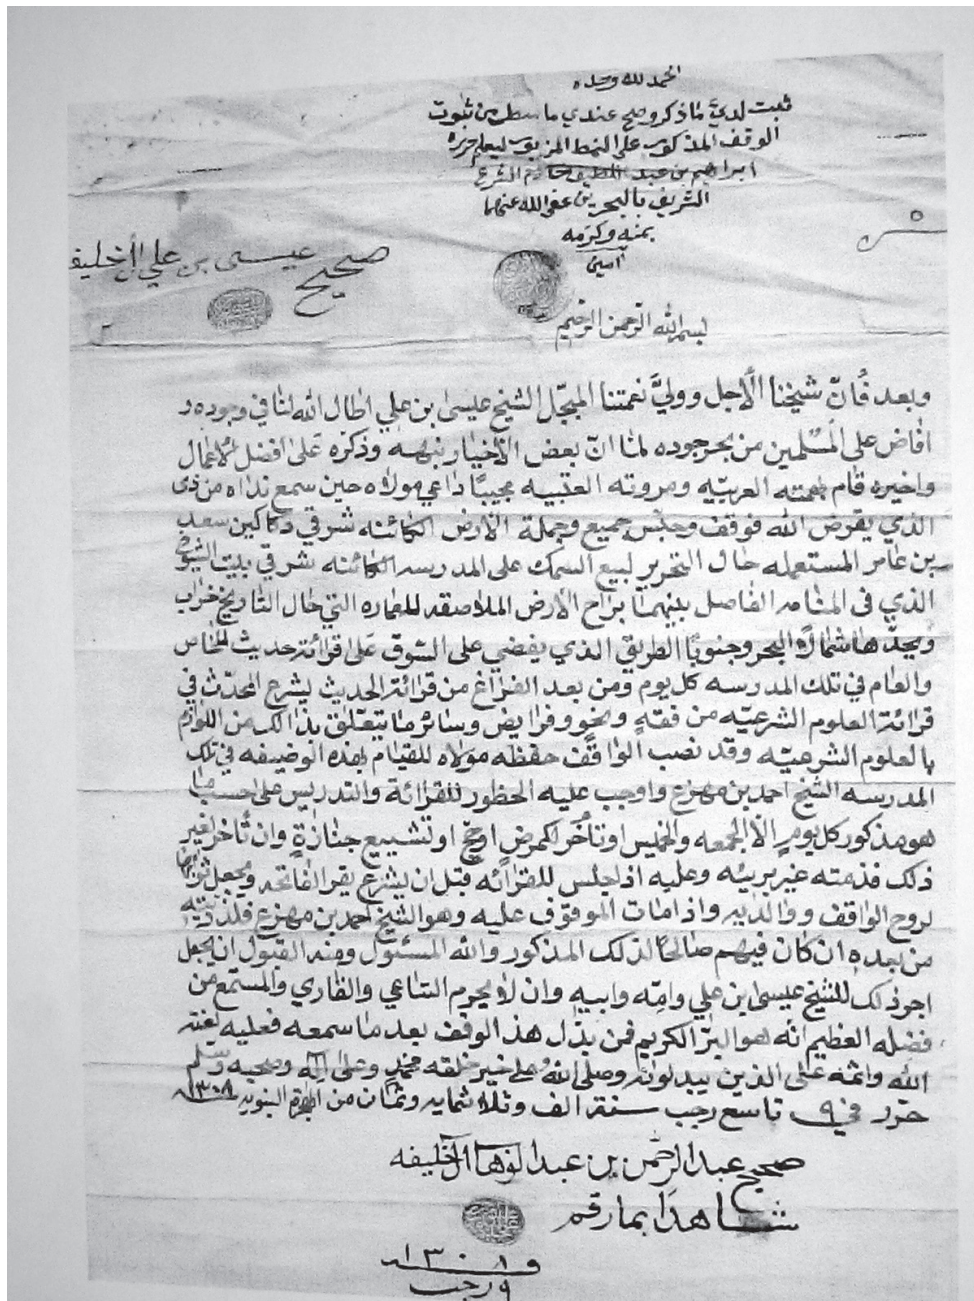 الحمد لله وحده
ثبت لديَّ ماذكر وصح عندي ما سطر من ثبوت
الوقف المذكور على النمط المزبور ليعلم حرره
ابراهيم بن عبد اللطيف خادم الشرع
الشريف بالبحرين عفى الله عنهما
بمنه وكرمه
آمين
صحيح عيسى بن علي أل خليفه
بسم الله الرحمن الرحيم
وبعد فأنّ شيخنا الأجل ووليَّ نعمتنا المبجّل الشيخ عيسى بن علي اطال الله لنا في وجوده و
افاض على المسلمين من بحر جوده لما انّ بعض الأخيار نبهه وذكره على افضل الأعمال
واخيره قام بهمته العربيّه ومروته مجيبًا داعي مولاه حين سمع نداه من ذى
الذي يقرض الله فوقف وحبس جميع وجملة الارض الكائنه شرقي دكاكين سعد
بن عامر المستعمله حال التحرير لبيع السمك على المدرسه الكائنه شرقي بيت الشيوخ
الذي في المنامه الفاصل بينهما براح الأرض الملاصقه للعماره التي حال التاريخ خراب
ويحدّها شمالًا البحر وجنوبًا الطريق الذي يفضي على السّوق على قرائة حديث للخاص
والعام في تلك المدرسه كل يوم ومن بعد الفراغ من قرائة الحديث يشرع المحدّث في
قرائة العلوم الشرعيّه من فقهٍ ونحوٍ وفرايض وسائر ما يتعلق بذالك من اللوازم
بالعلوم الشرعيّه وقد نصب الواقف حفظه مولاه للقيام بهذه الوضيفه في تلك
المدرسه الشيخ احمد بن مهزع واوجب عليه الحظور للقرائة والتدريس على حسب ما
هو مذكور كل يومٍ الا الجمعه والخميس او تأخر لمرض او حج او تشييع جنازةٍ وان تأخر لغير
ذلك فذمته غير بريئه وعليه اذا جلس للقرائه قبل ان يشرع يقر الفاتحه ويجعل ثوابها
لروح الواقف ووالديه واذا مات الموقوف عليه وهو الشيخ احمد بن مهزع فلذريته
من بعده ان كان فيهم صالحًا لذلك المذكور والله المسئول ومنه القبول ان يجعل
اجر ذلك للشيخ عيسى بن علي وامّه وابيه وان لا يحرم الساعي والقاري والمستمع من
فضله العظيم انّه هو البرّ الكريم فمن بدّل هذ الوقف بعد ما سمعه فعليه لعنة
الله واثمه على الذين يبدلونه وصلى الله على خير خلقه محمدٍ وعلى آله وصحبه وسلم
حرّر في ٩ تاسع رجب سنة الف وثلاثمايه وثمان من الهجرة النبويه ١٣٠٨
صحيح عبد الرحمن بن عبد الوهاب آل خليفه
شاهدا بما رقم
١٣٠٨
٩ رجب